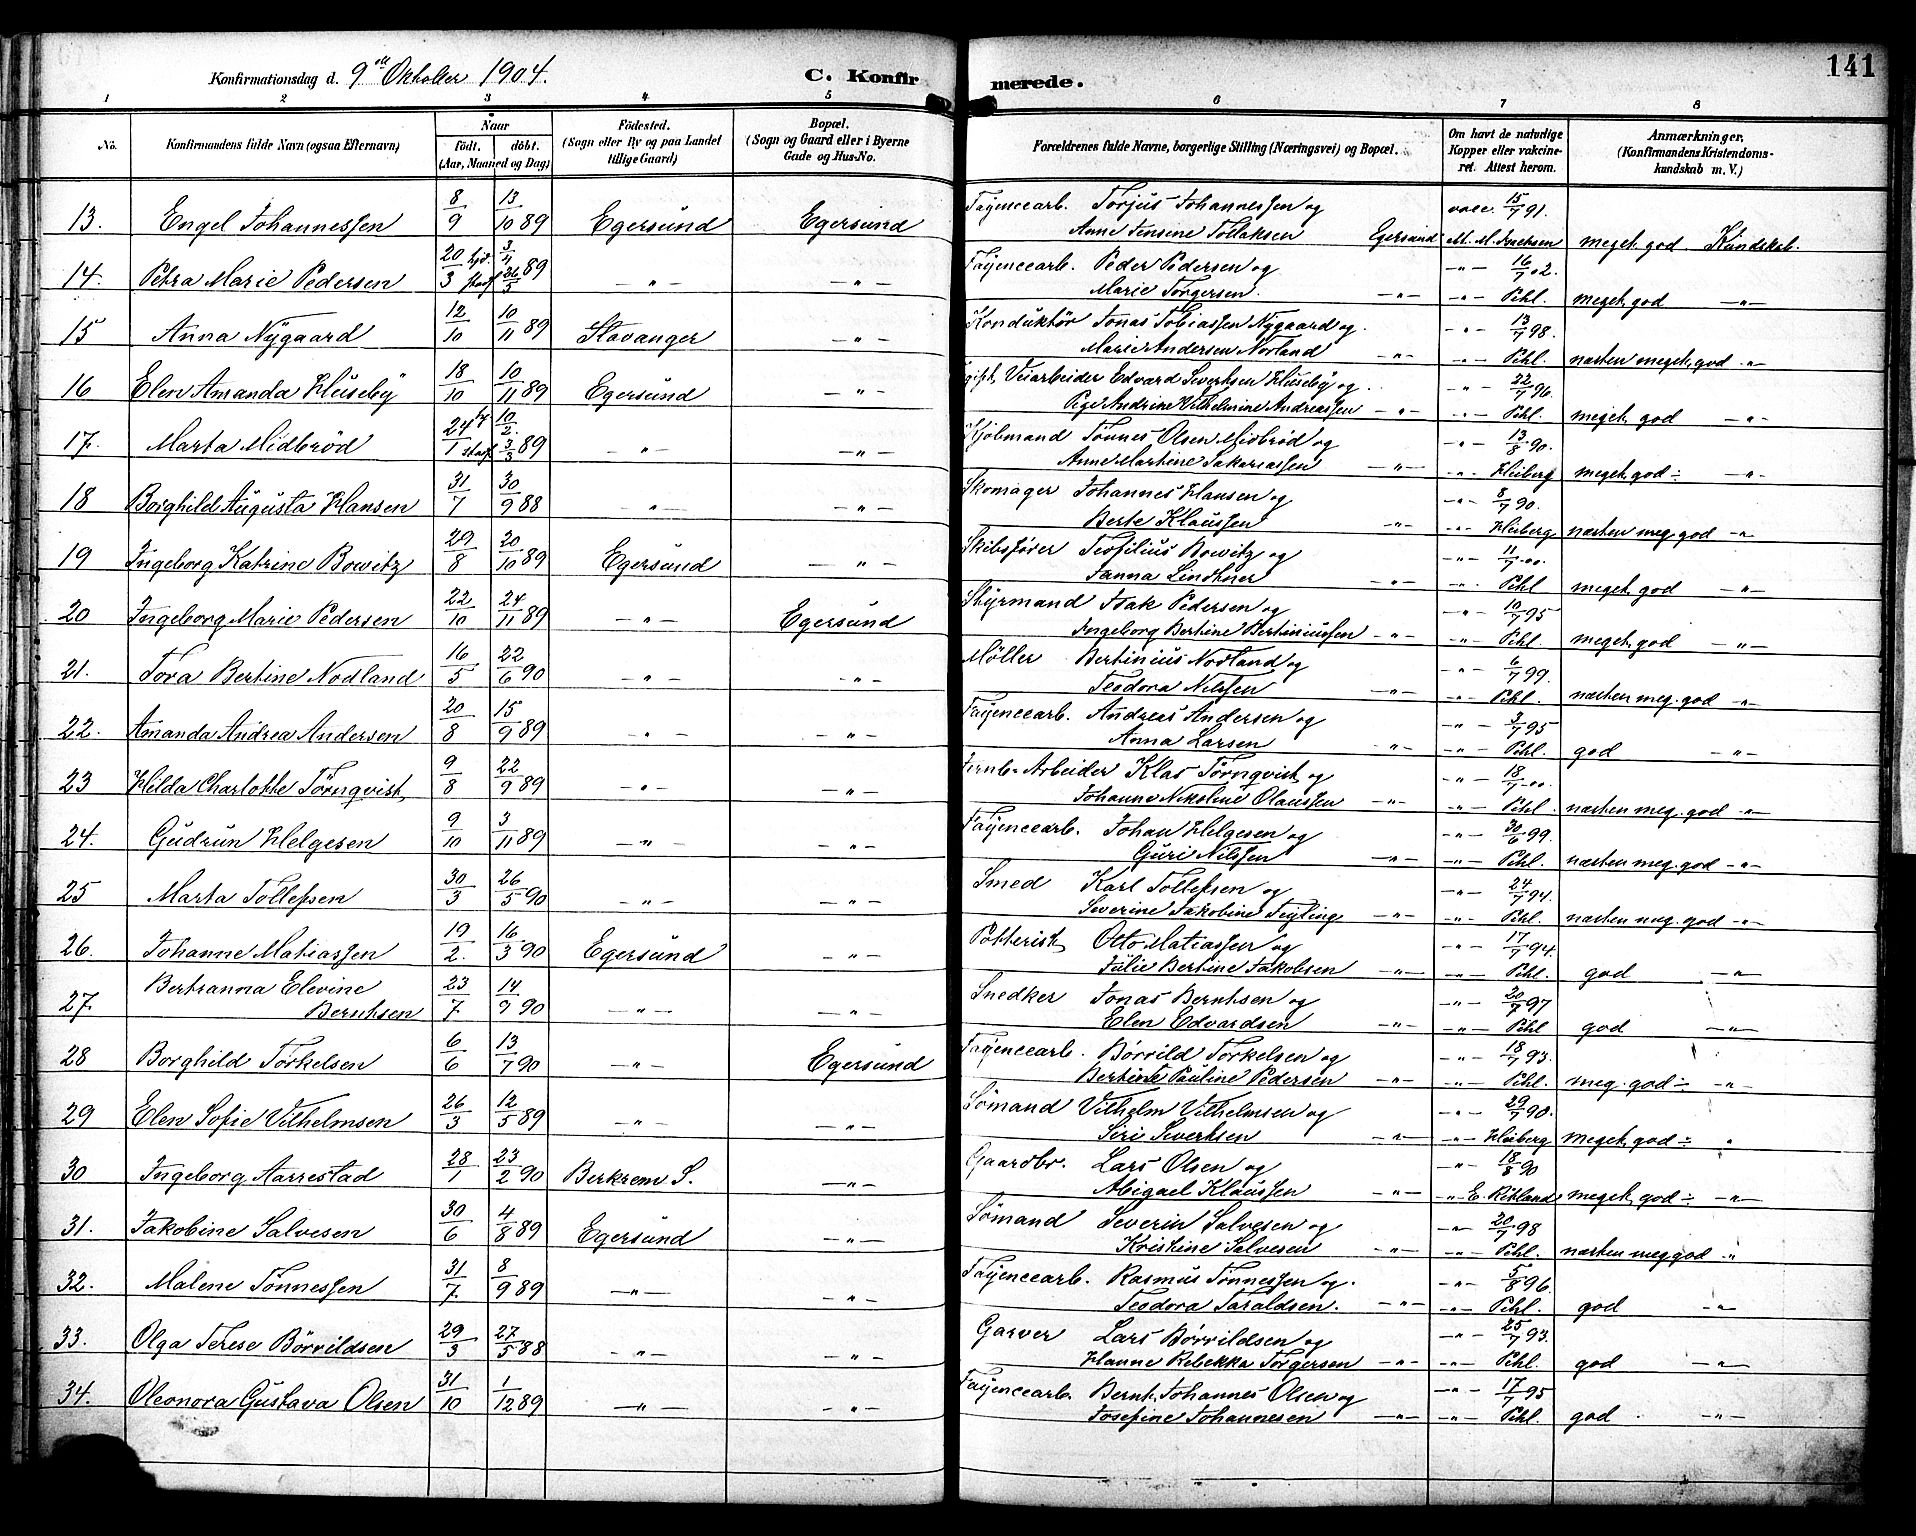 141
Konfirmationsdag d. 9de Oktober 1904. C. Konfirmerede.
1 2 3 4 5 6 7 8
No. Konfirmandens fulde Navn (ogsaa Efternavn) Naar födt. döbt. (Aar, Maaned og Dag) Födested. (Sogn eller By og paa Landet tillige Gaard) Bopæl. (Sogn og Gaard eller i Byerne Gade og Hus-No. Forældrenes fulde Navne, borgerlige Stilling (Næringsvei) og Bopæl. Om havt de naturlige Kopper eller vakcineret. Attest herom. Anmærkninger, (Konfirmandens Kristendomskundskab m. V.)
13. Engel Johannessen 8/9 13/10 89 Egersund Egersund Fayencearb. Torjus Johannessen og vacc. 15/7 91.
Anne Jensine Tollaksen Egersund M. M. meget god Kundskab.
14. Petra Marie Pedersen 20/3 hjd. 3/4 stadf. 26/5 89 —"— —"— Fayencearb. Peder Pedersen og —"— 16/7 02.
Marie Torgersen. —"— —"— Pihl. meget god —"—
15 Anna Nygaard 12/10 10/11 89 Stavanger —"— Konduktör Jonas Tobiassen Nygaard og —"— 13/7 98.
Marie Andersen Norland —"— —"— Pihl. næsten meget god —"—
16 Elen Amanda Huseby 18/10 10/11 89 Egersund —"— gift Veiarbeider Edvard Sivertsen Huseby og —"— 22/7 96.
Pige Andrine Vilhelmine Andreassen —"— —"— Pihl. meget god —"—
17. Marta Midbröd 24/1 10/2 stadf. 3/3 89 —"— —"— Kjöbmand Tönnes Olsen Midbröd og —"— 13/8 90.
Anne Martine Sakariassen —"— —"— Heiberg meget god ÷ —"—
18 Borghild Augusta Hansen 31/7 30/9 88 —"— —"— Skomager Johannes Hansen og —"— 8/7 90.
Berte Klaussen —"— —"— Heiberg næsten meg. god —"—
19 Ingeborg Katrine Bowitz 29/8 20/10 89 Egersund —"— Skibsförer Teofilius Bowitz og —"— 11/7 00.
Janna Lindtner —"— —"— Pihl meget god —"—
20 Ingeborg Marie Pedersen 22/10 24/11 89 —"— Egersund Styrmand Isak Pedersen og —"— 10/7 95
Ingeborg Bertine Bertiniussen —"— —"— Pihl. meget god —"—
21. Tora Bertine Nodland 16/5 22/6 90 —"— —"— Möller Bertinius Nodland og —"— 6/7 99.
Teodora Nilssen —"— —"— Pihl. næsten meg. god —"—
22. Amanda Andrea Andersen 20/8 15/9 89 —"— —"— Fayencearb. Andreas Andersen og —"— 3/7 95
Anna Larsen —"— —"— Pihl. god —"—
23 Hilda Charlotte Törnqvist 9/8 22/9 89 —"— —"— Jernb.-Arbeider Klas Törnqvist og —"— 18/7 00.
Johanne Nikoline Olaussen —"— —"— Pihl. næsten meg. god —"—
24. Gudrun Helgesen 9/10 3/11 89 —"— —"— Fayencearb. Johan Helgesen og —"— 30/6 99.
Guri Nilssen —"— —"— Pihl. næsten meg. god —"—
25 Marta Tollefsen 30/3 26/5 90 —"— —"— Smed Karl Tollefsen og —"— 24/7 94.
Severine Jakobine Fejling —"— —"— Pihl. næsten meg. god —"—
26. Johanne Matiassen 19/2. 16/3 90 Egersund —"— Potterist Otto Matiassen og —"— 17/7 94.
Julie Bertine Jakobsen —"— —"— Pihl. god —"—
27. Bertranna Elevine Berntsen 23/7 14/9 90 —"— —"— Snedker Jonas Berntsen og —"— 20/7 97
Elen Edvardsen —"— —"— Pihl god —"—
28 Borghild Torkelsen 6/6 13/7 90 —"— Egersund Fayencearb. Börrild Torkelsen og —"— 18/7 93.
Bertine Pauline Pedersen —"— —"— Pihl. meg. god ÷ —"—
29 Elen Sofie Vilhelmsen 26/3 12/5 89 —"— —"— Sömand Vilhelm Vilhelmsen og —"— 29/7 90.
Siri Sivertsen —"— —"— Heiberg meget god ÷ "
30 Ingeborg Aarrestad 28/1 23/2 90 Berkrem S. —"— Gaardbr. Lars Olsen og —"— 18/8 90
Abigael Klaussen —"— —"— E. Ritland meget god ÷ —"—
31. Jakobine Salvesen 30/6 4/8 89 Egersund —"— Sömand Severin Salvesen og —"— 20/7 98
Kristine Salvesen —"— —"— Pihl. næsten meg god —"
32. Malene Tönnessen 31/7. 8/9 89 —"— —"— Fayencearb. Rasmus Tönnessen og —"— 5/8 96.
Teodora Taraldsen. —"— —"— Pihl. god —"—
33. Olga Terese Börrildsen 29/3 27/5 88 —"— —"— Garver Lars Börrildsen og —"— 25/7 93.
Hanne Rebekka Torgersen —"— —"— Pihl. god —"—
34. Oleonora Gustava Olsen 31/10 1/12 89 —"— —"— Fayencearb. Bernt Johannes Olsen og —"— 17/7 95
Josefine Johannesen —"— —"— Pihl. god —"—